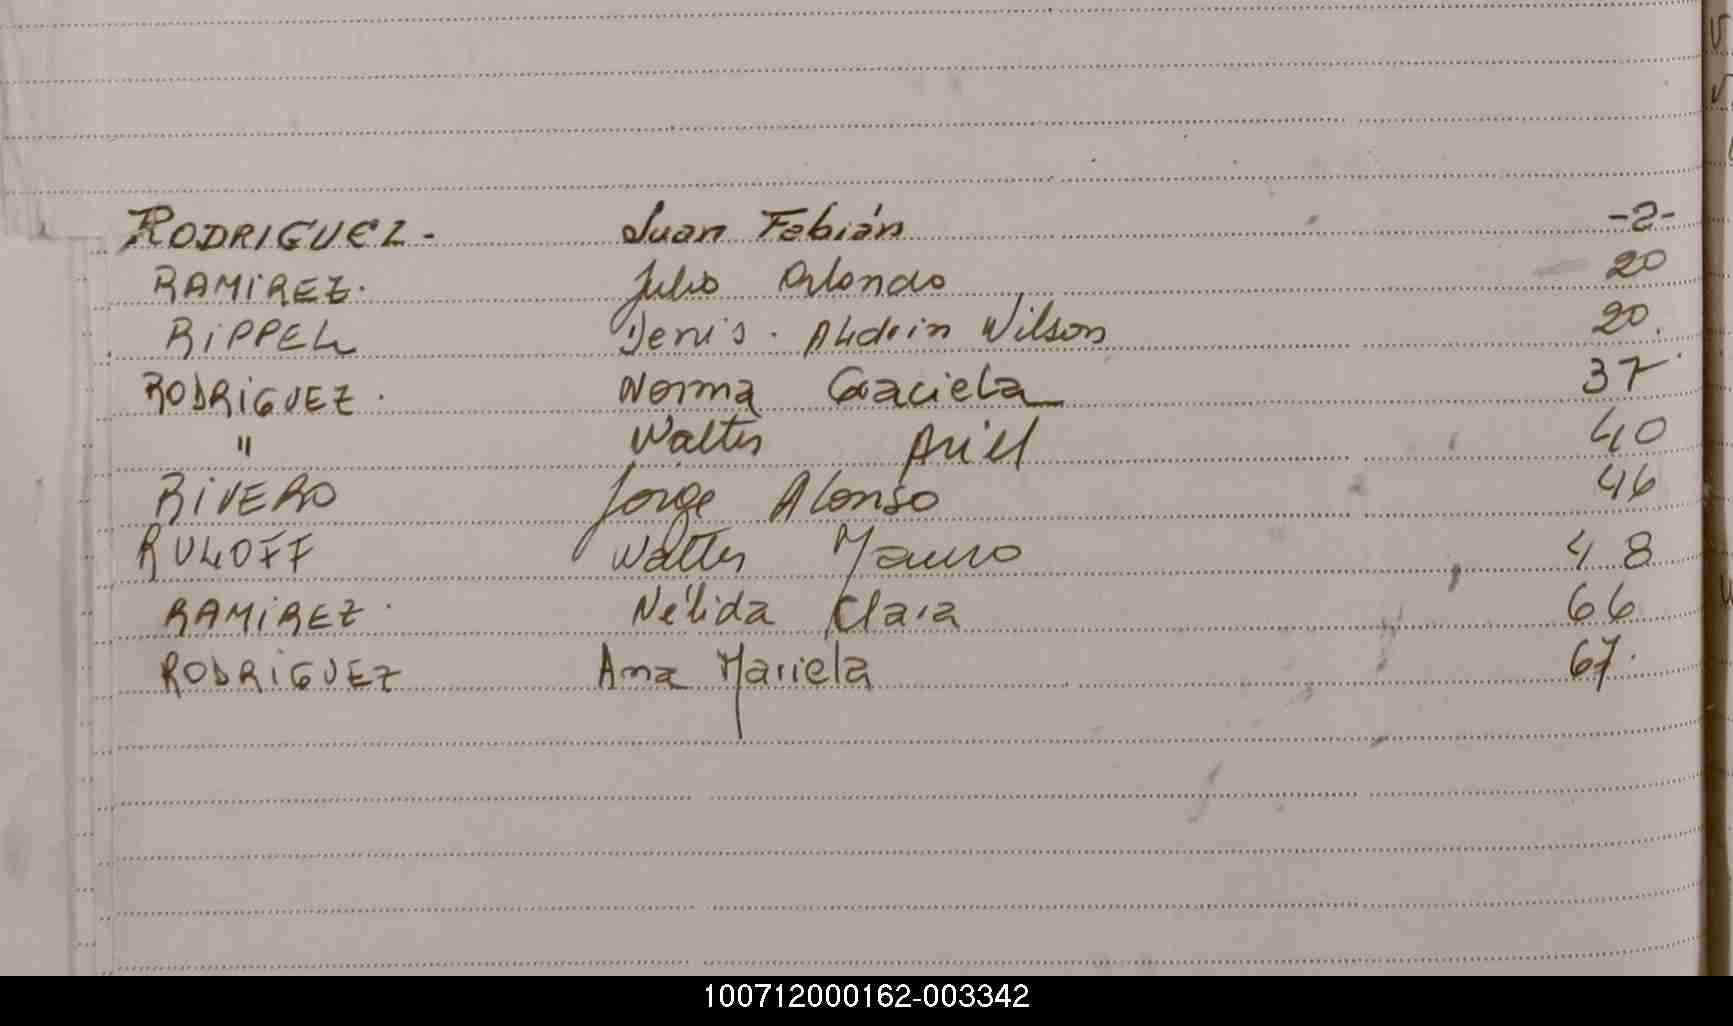 RODRIGUEZ - Juan Fabián -2-
RAMIREZ. Julio Orlando 20
RIPPEL Denis. Aldrin Wilson 20.
RODRIGUEZ. Norma Graciela 37
" Walter Ariel 40
RIVERO Jorge Alonso 46
RULOFF Walter Mauro 48
RAMIREZ. Nélida Clara 66
RODRIGUEZ Ana Mariela 67.
100712000162-003342